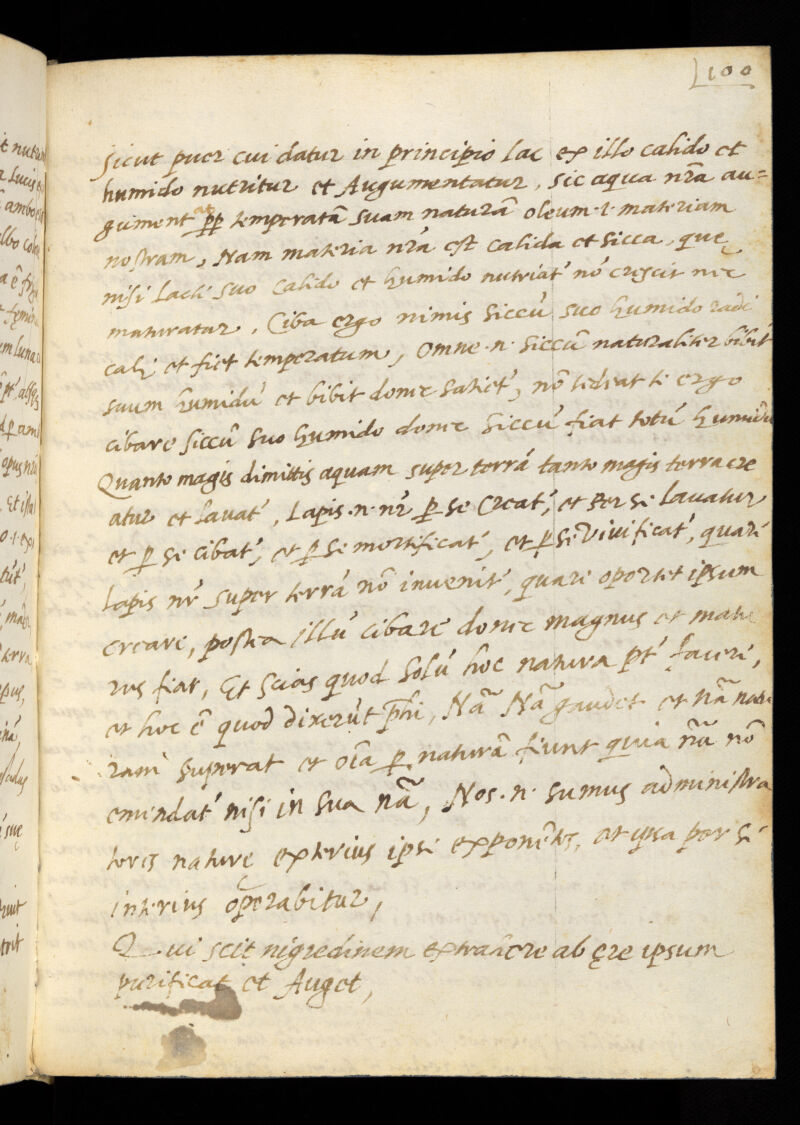 100
sicut puer cui datur in principio lac ex illo calido et
humido nutritur et Augumentatur, sic aqua nr̃a au=
gumentat pp̃ temperatã suam naturã oleum .i. materiam
nostram, Nam materia nr̃a est calida et sicca, quę
nisi lacti suo calido et humido nutriat' nõ crescit nec
maturatur, Ciba ergo nimis siccũ suo humido radi
cali et fiet temperatum, Omne .n. siccũ naturaliter bibit
suum humidũ et bibit donec satiet', nõ tedeat te ergo
cibare siccũ suo humido donec siccũ fiat totũ humidũ
Quanto magis dimittis aquam super terrã tanto magis terra cre
atur et lavat', Lapis .n. nr̃ p se Creat', et per se lavatur
et p se cibat', et p se mortificat', et p se vivificat', quare
Lapis nr̃ super terrã nõ invenit', quare oportet ipsum
creare, postea illũ cibare donec magnus et matu
rus fiat, Et scias quod solũ hoc natura pt̃ facere,
et hoc ẽ quod dixerũt phĩ, Nã Nã gaudet et nã natu
ram superat et oĩa p naturã fiunt quia nã nõ
emendat' nisi in sua nã, Nos .n. sumus administra
tores nature exterius ipse exponẽtes, at ipsa per sẽ
interius operabitur,
Qui scit nigredinem extrahere ab ęre ipsum
purificat et Auget,
it nutri
a Lucis
ambo
albo
terra